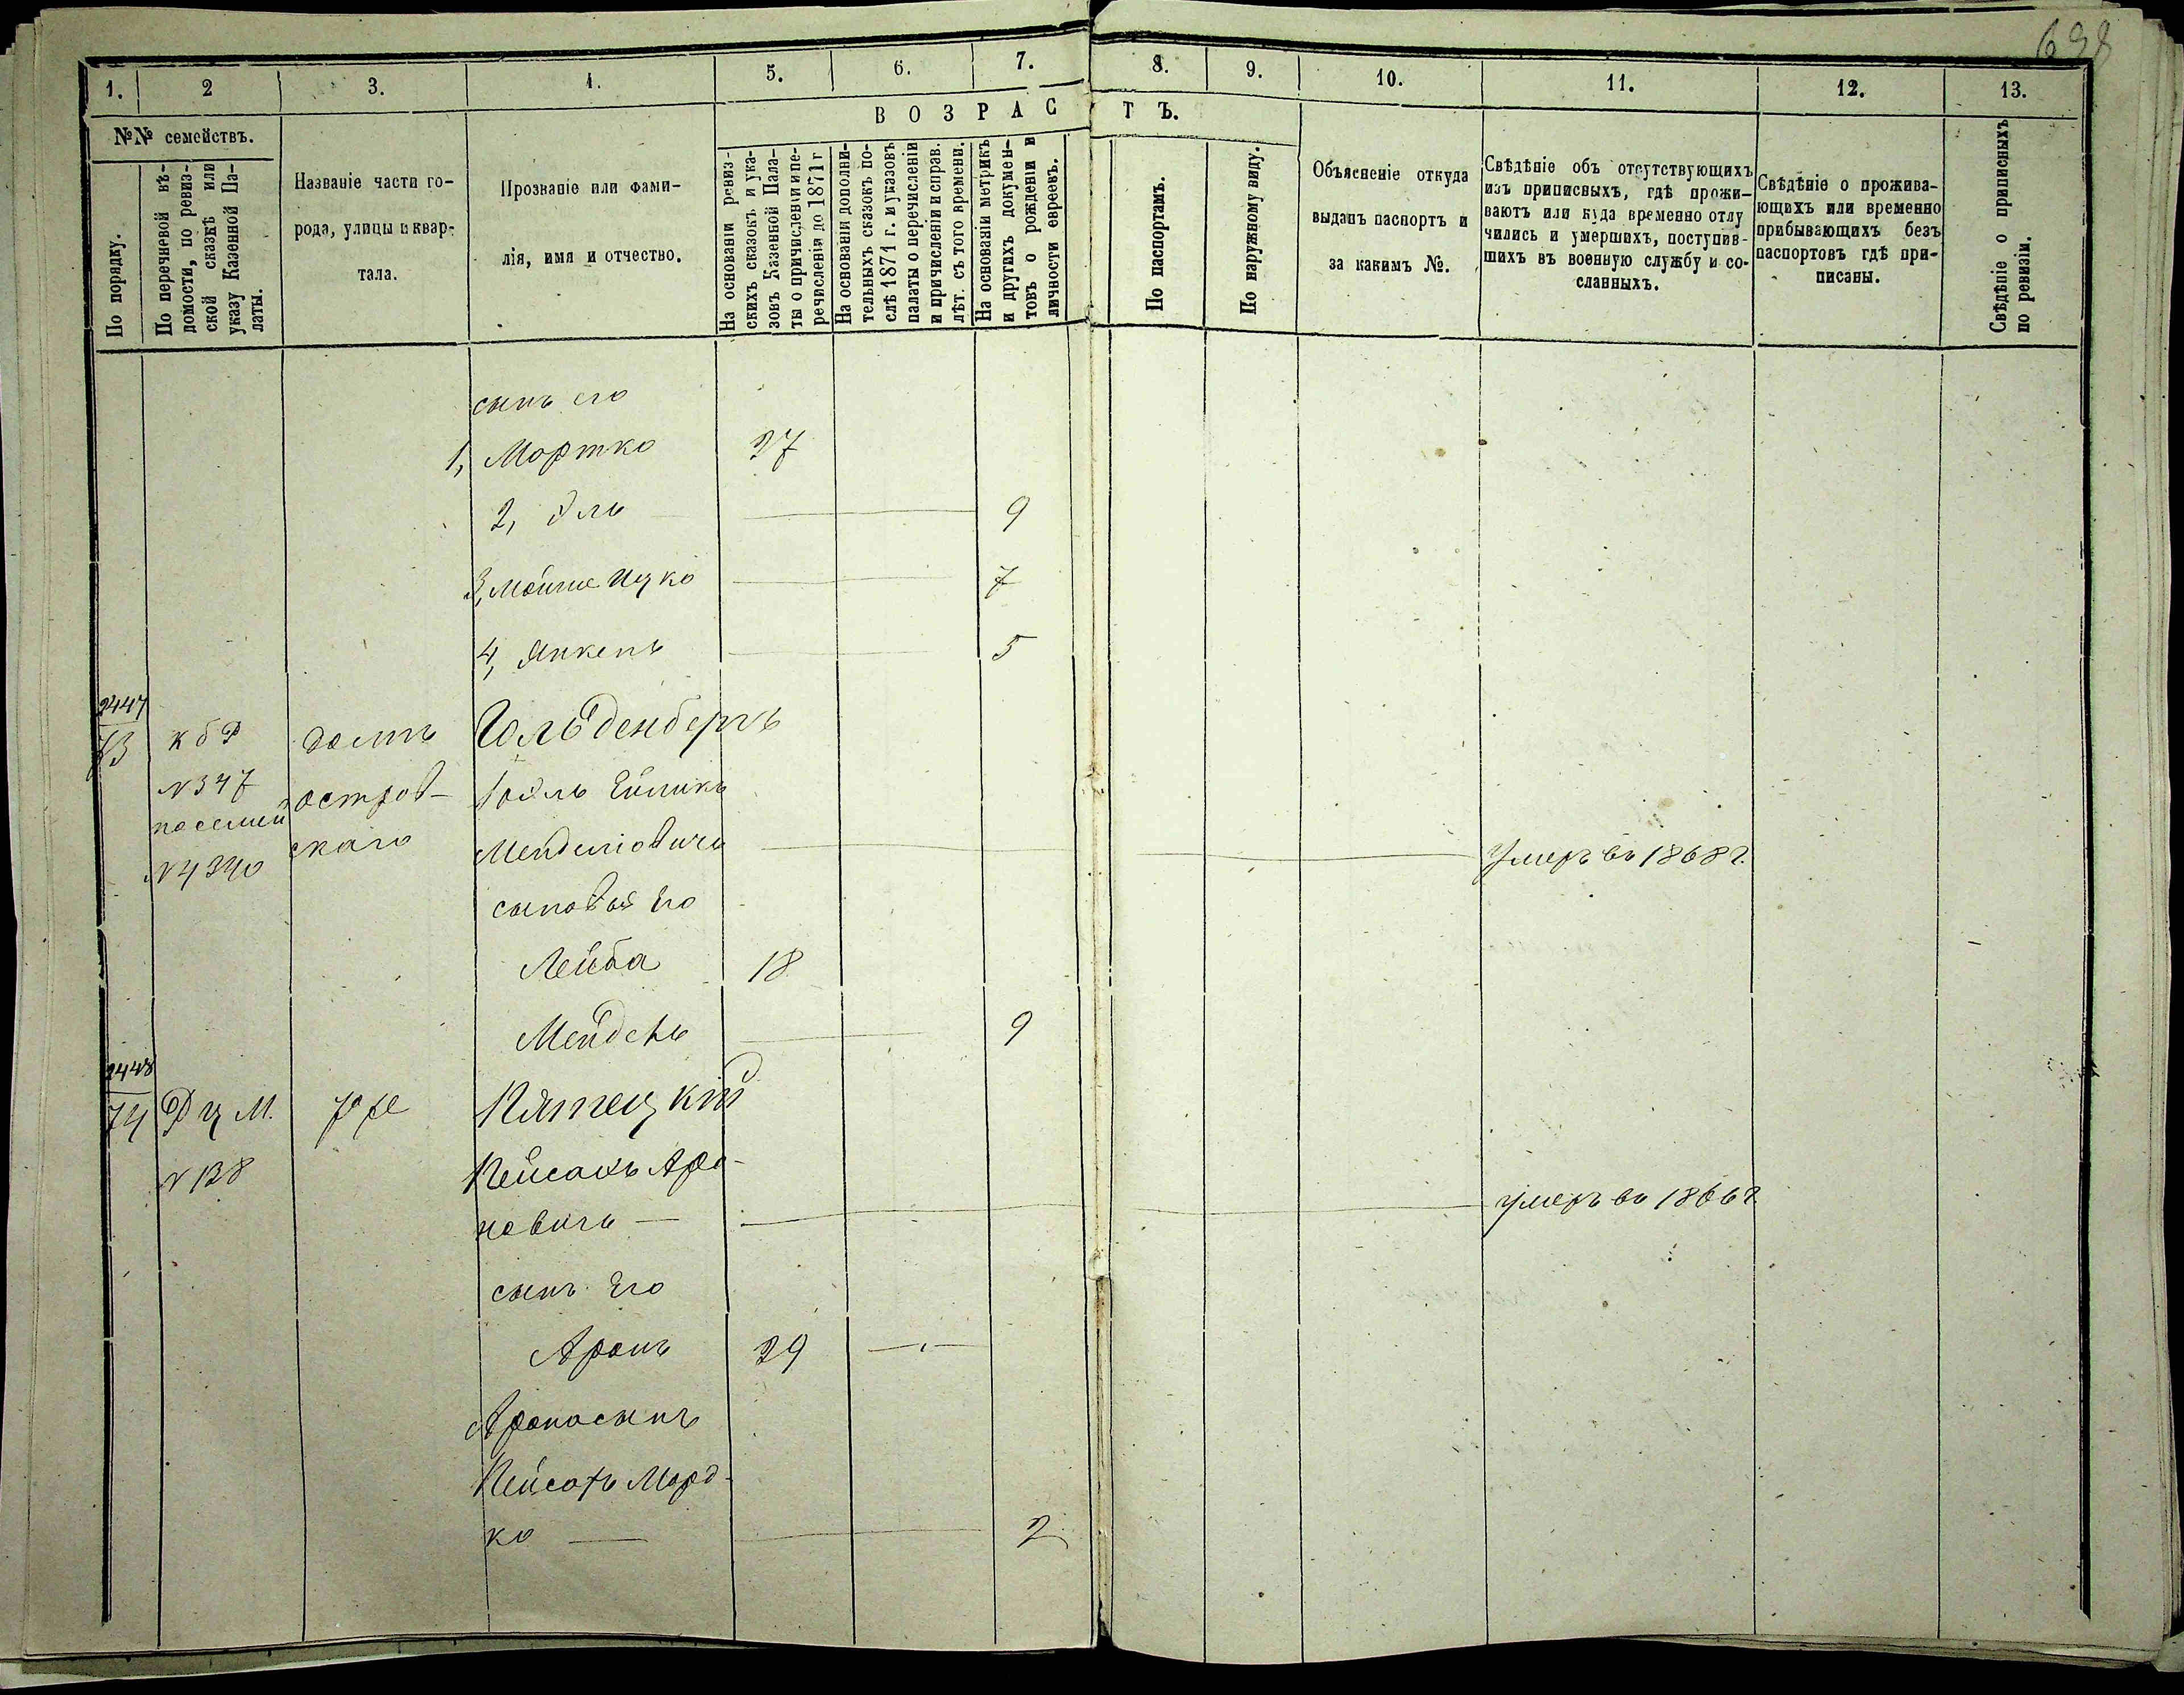 698
1.
2
3.
4.
5.
6.
7.
8.
9.
10.
11.
12.
13.
№№ семействъ.
В О З Р А С Т Ъ.
По порядку.
По перечневой вѣ-
домости, по ревиз-
ской сказкѣ или
указу Казенной Па-
латы.
Названіе части го-
рода, улицы и квар-
тала.
Прозваніе или фами-
лія, имя и отчество.
На основаніи ревиз-
скихъ сказокъ и ука-
зовъ Казенной Пала-
ты о причисленіи и пе-
речисленія до 1871 г
На основаніи дополни-
тельныхъ сказокъ по-
слѣ 1871 г. и указовъ
палаты о перечисленіи
и причисленіи и справ.
лѣт. съ того времени.
На основаніи метрикъ
и другихъ докумен-
товъ о рожденіи и
личности евреевъ.
По паспортамъ.
По наружному виду.
Объясненіе откуда
выданъ паспортъ и
за какимъ №.
Свѣдѣніе объ отсутствующихъ
изъ приписныхъ, гдѣ прожи-
ваютъ или куда временно отлу
чились и умершихъ, поступив-
шихъ въ военную службу и со-
сланныхъ.
Свѣдѣніе о прожива-
ющихъ или временно
прибывающихъ безъ
паспортовъ гдѣ при-
писаны.
Свѣдѣніе о приписныхъ
по ревизіи.
сынъ его
1, Мортко 37
2, Эль 9
3, Мойше Ицко 7
4, Янкель 5
2447
73 к б Р домъ Гольденбергъ
№ 347 Островскаго
по семей
№ 4340 Менделіовичъ Умеръ въ 1868 г.
сыновья Его
Лейба 18
Мендель 9
2448
74 Р ц М. Пятецкій
№ 138 Пейсахъ Аро-
новичъ умеръ въ 1866 г
сынъ Его
Аронъ 29
Арона сынъ
Пейсахъ Морд-
ко 2